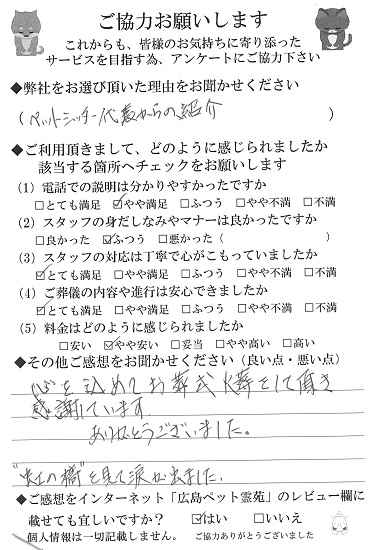 ご協力お願いします
これからも、皆様のお気持ちに寄り添った
サービスを目指す為、アンケートにご協力下さい
◆弊社をお選び頂いた理由をお聞かせください
(ペットシッター代表からの紹介 )
◆ご利用頂きまして、どのように感じられましたか
該当する箇所へチェックをお願いします
(1) 電話での説明は分かりやすかったですか
□とても満足 ☑やや満足 □ふつう □やや不満 □不満
(2) スタッフの身だしなみやマナーは良かったですか
□良かった ☑ふつう □悪かった ( )
(3) スタッフの対応は丁寧で心がこもっていましたか
☑とても満足 □やや満足 □ふつう □やや不満 □不満
(4) ご葬儀の内容や進行は安心できましたか
☑とても満足 □やや満足 □ふつう □やや不満 □不満
(5) 料金はどのように感じられましたか
□安い ☑やや安い □妥当 □やや高い □高い
◆その他ご感想をお聞かせください (良い点・悪い点)
心を込めてお葬式火葬をして頂き
感謝しています。
ありがとうございました。
"虹の橋"を見て涙が出ました。
◆ご感想をインターネット「広島ペット霊苑」のレビュー欄に
載せても宜しいですか? ☑はい □いいえ
個人情報は一切記載しません。 ご協力ありがとうございました